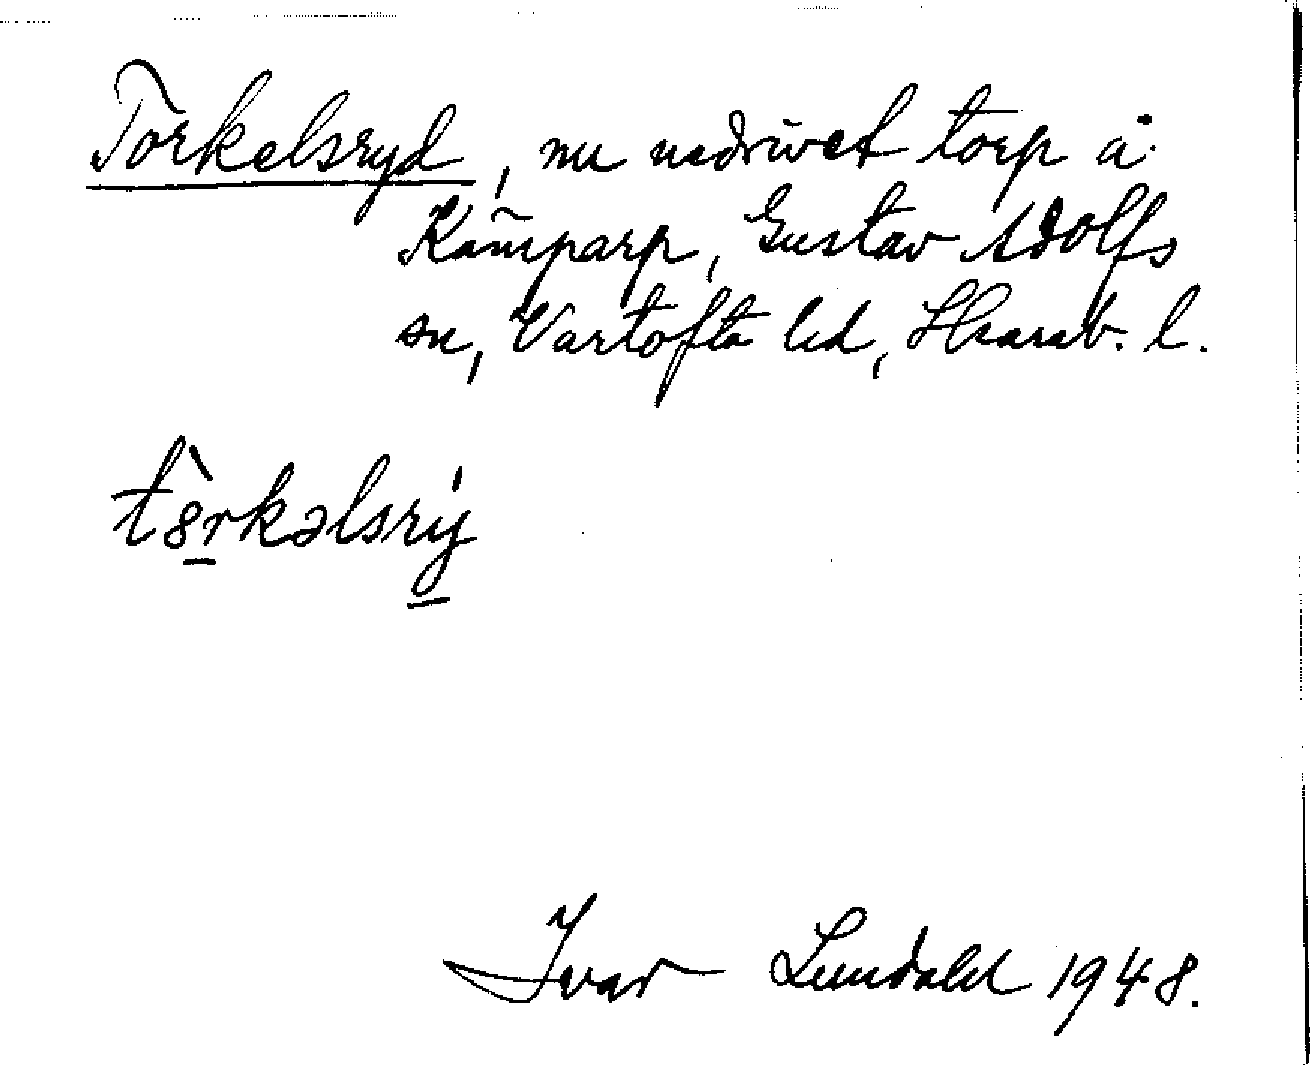 Torkelsryd, nu nedrivet torp å
Kämparp, Gustav Adolfs
sn, Vartofta hd, Skarab. l.
tȣ̀rkəlsrý
Ivar Lundahl 1948.